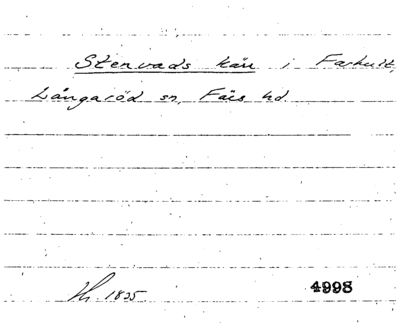 Stenvads kärr i Farhult,
Långaröd sn, Färs hd.
1825 4998